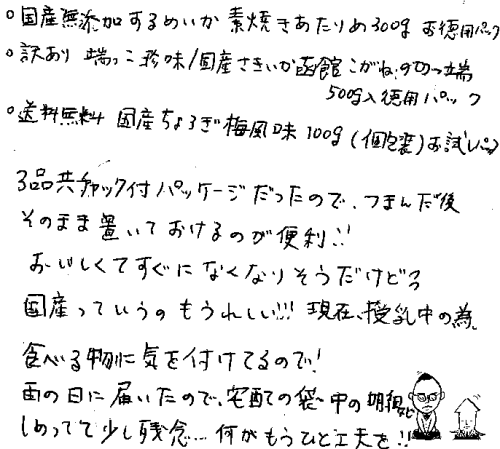 ○国産無添加するめいか 素焼きあたりめ300g お徳用パック
○訳あり 端っこ珍味/国産さきいか函館こがねの切っ端
500g入徳用パック
○送料無料 国産ちょろぎ梅風味 100g (個包装)お試しパック
3品共チャック付パッケージだったので、つまんだ後
そのまま置いておけるのが便利!!
おいしくてすぐになくなりそうだけどう
国産っていうのもうれしい!!! 現在、授乳中の為、
食べる物に気を付けてるので!
雨の日に届いたので、宅配の袋~中の など
しめってて少し残念…何かもうひと工夫を!!